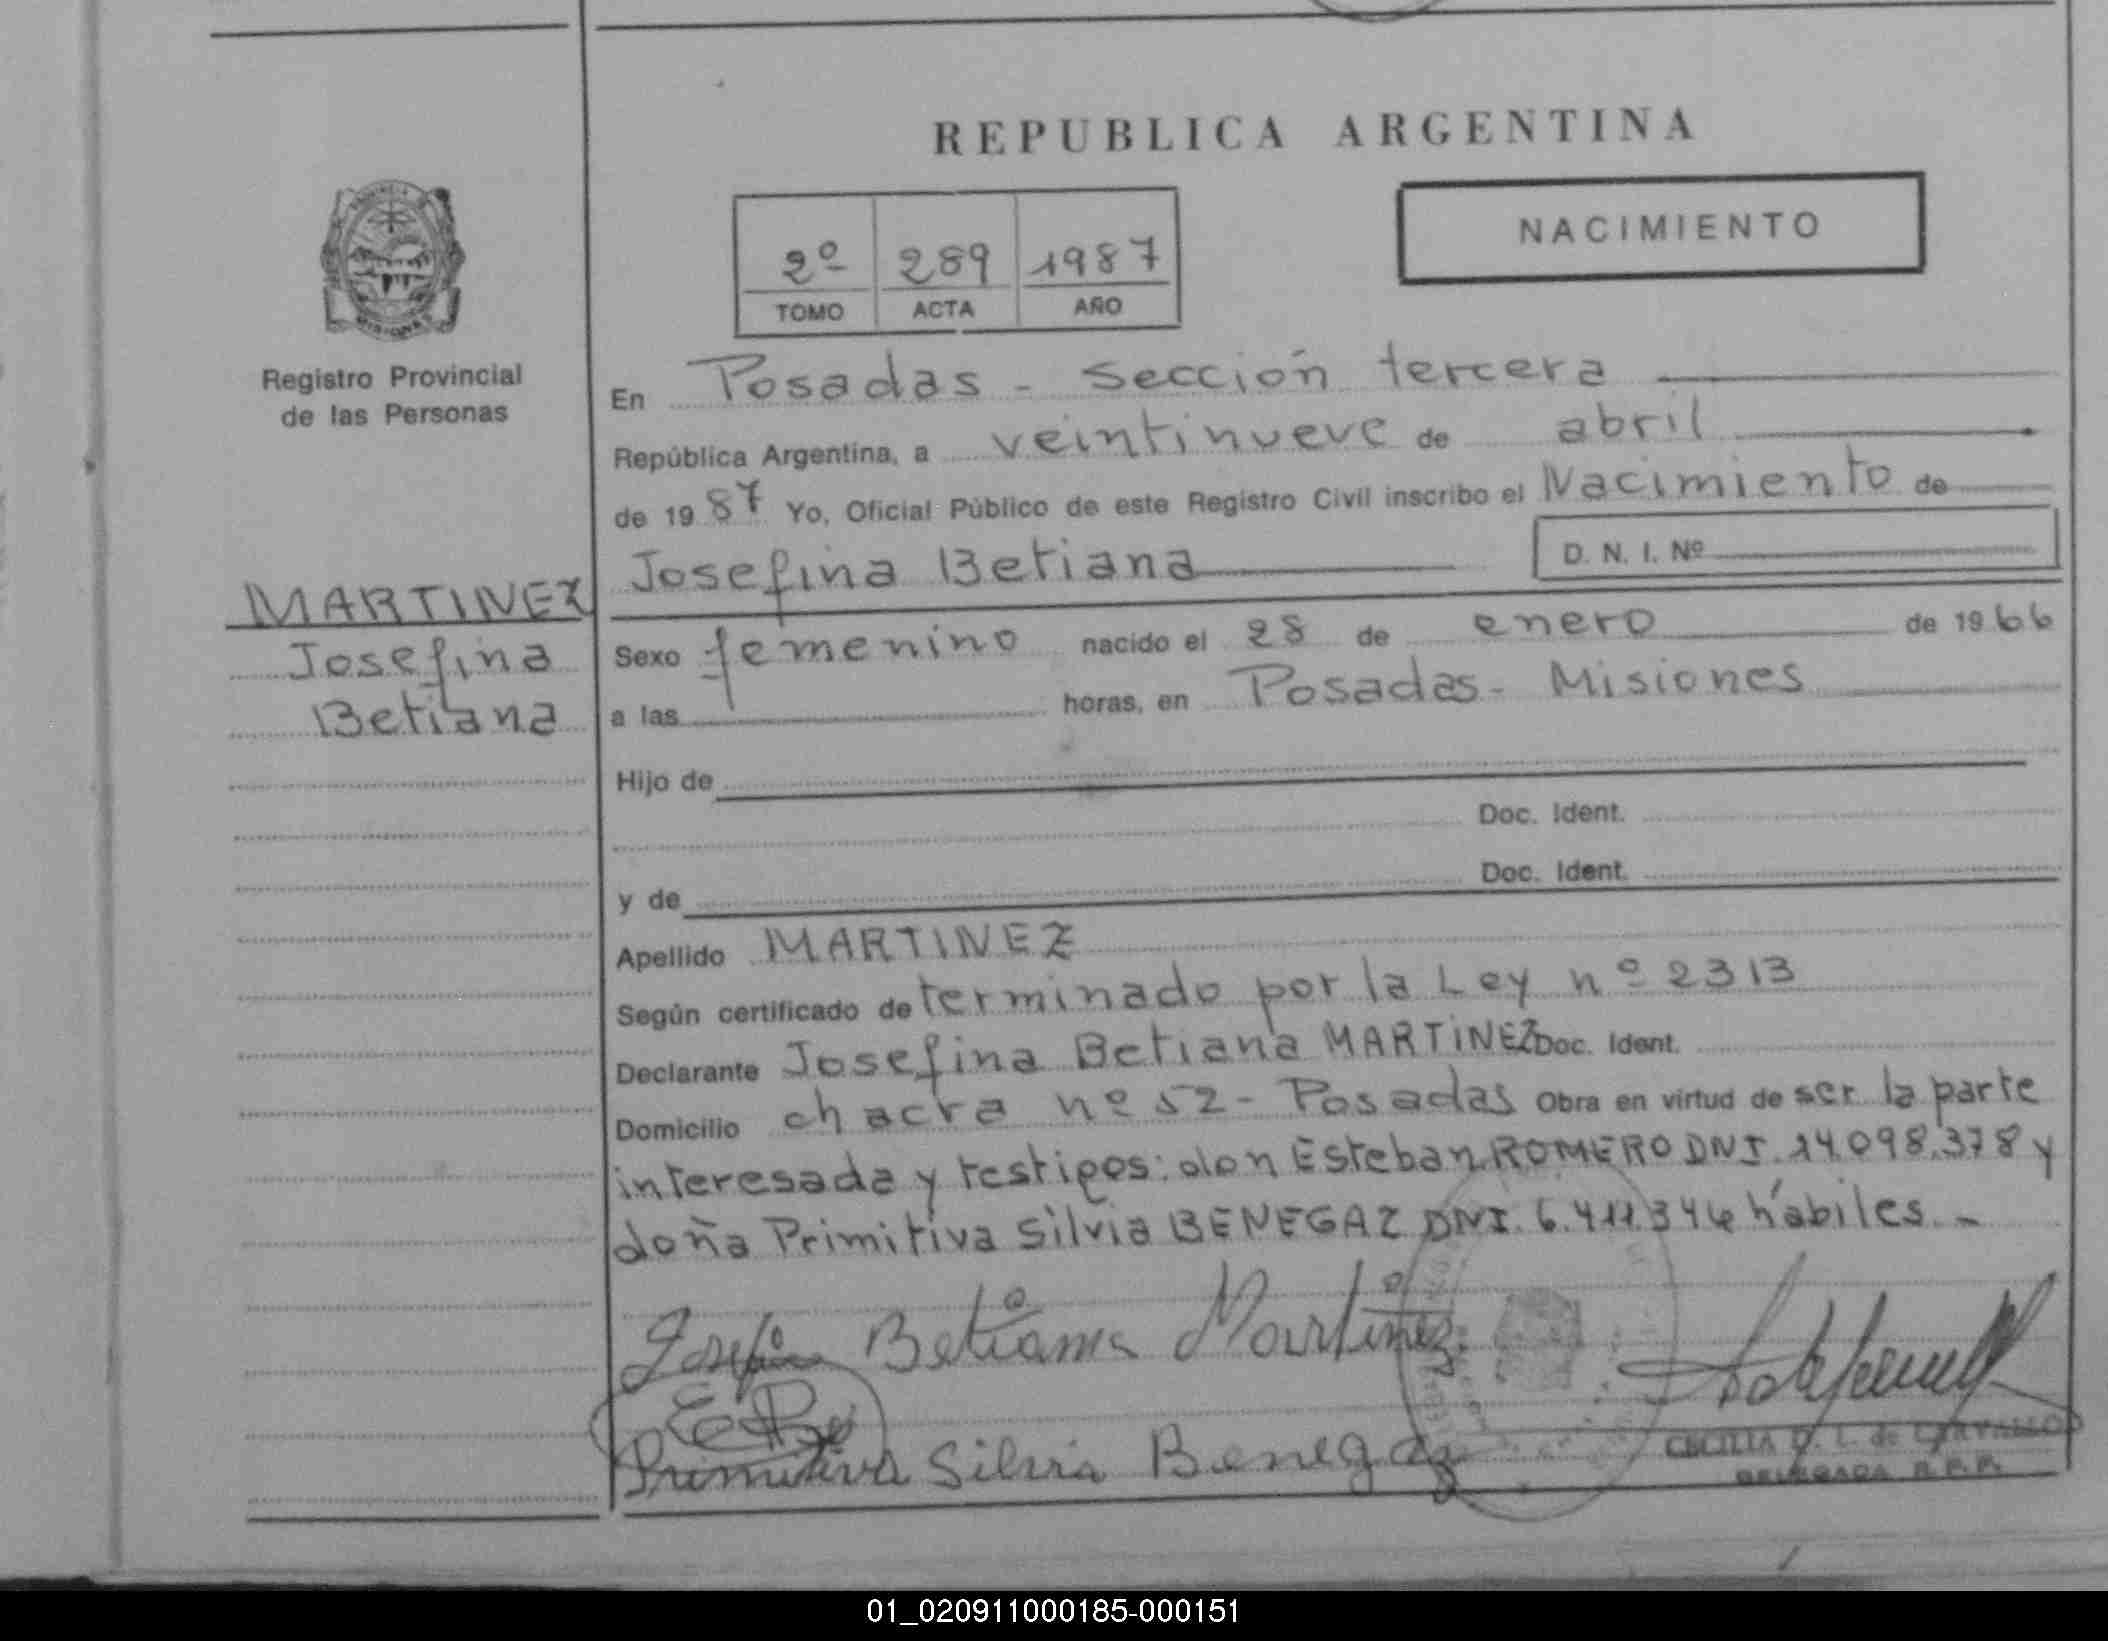 REPUBLICA ARGENTINA
NACIMIENTO
2º 289 1987
TOMO ACTA AÑO
PROVINCIA
MISIONES
Registro Provincial
de las Personas
MARTINEZ
Josefina
Betiana
En Posadas - sección tercera
República Argentina, a veintinueve de abril
de 1987 Yo, Oficial Público de este Registro Civil inscribo el Nacimiento de
Josefina Betiana D. N. I. Nº
Sexo femenino nacido el 28 de enero de 1966
a las horas, en Posadas - Misiones
Hijo de
Doc. Ident.
y de Doc. Ident.
Apellido MARTINEZ
Según certificado de terminado por la Ley nº 2313
Declarante Josefina Betiana MARTINEZ Doc. Ident.
Domicilio chacra nº 52 - Posadas Obra en virtud de ser la parte
interesada y testigos: don Esteban ROMERO DNI. 14.098.378 y
doña Primitiva Silvia BENEGAZ DNI. 6.411.344 hábiles. -
Josefina Betiana Martinez
Primitiva Silvia Benegaz
CECILIA D. L. de CARVALLO
DELEGADA R.P.P.
01_020911000185-000151